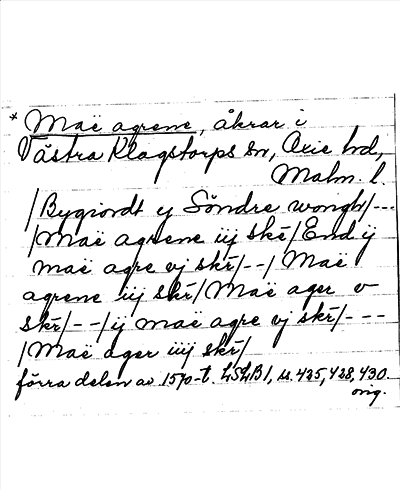 * Maë agrene, åkrar i
Västra Klagstorps sn, Oxie hd,
Malm. l.
/Bygiordt ij Söndre wongh/---
/Maë agrene iij skē/End ij
maë agre vj skē/--/Maë
agrene iij skē/Maë ager v
skē/--/ij maë agre vj skē/---
/Maë ager iiij skē/
förra delen av 1570-t. LSLB1, ss. 425, 428, 430.
orig.